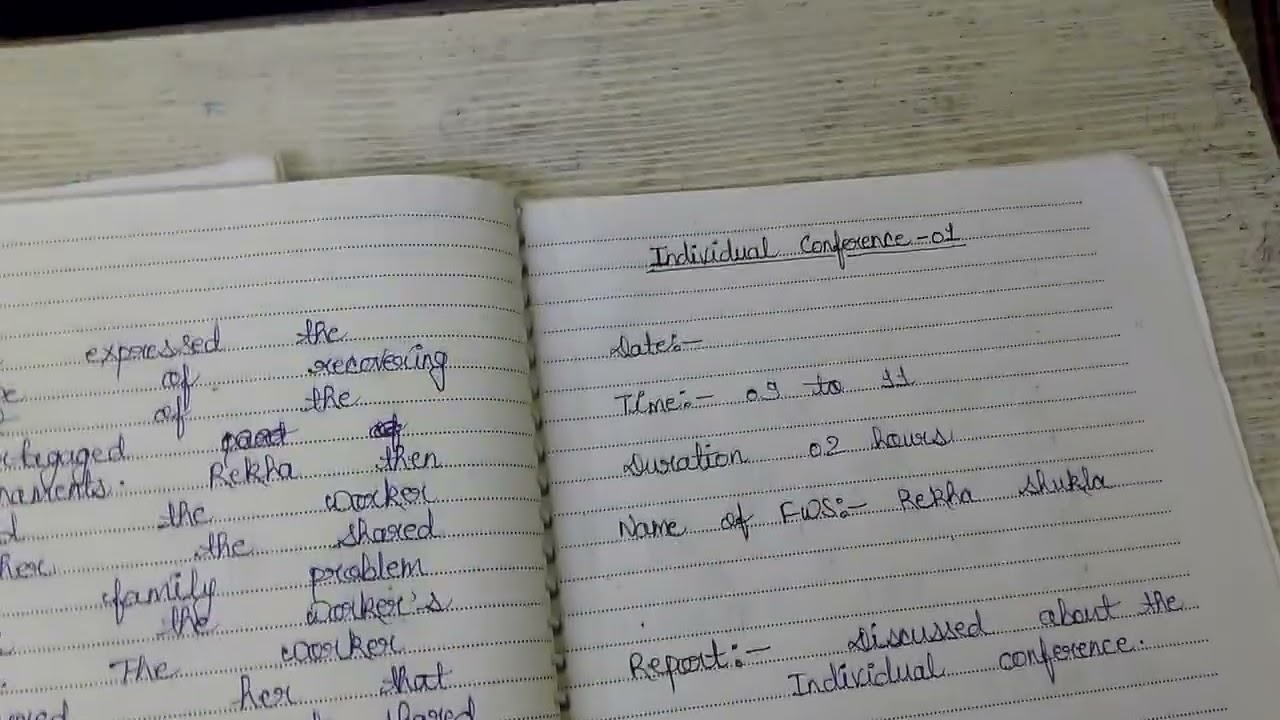 expressed the
of recovering
of the
Rekha then
the worker
the shared
family problem
the worker's
The worker
her that
shared
Individual Conference-01
Date:-
Time:- 09 to 11
Duration 02 hours
Name of FWS:- Rekha Shukla
Report:- Discussed about the
Individual conference.